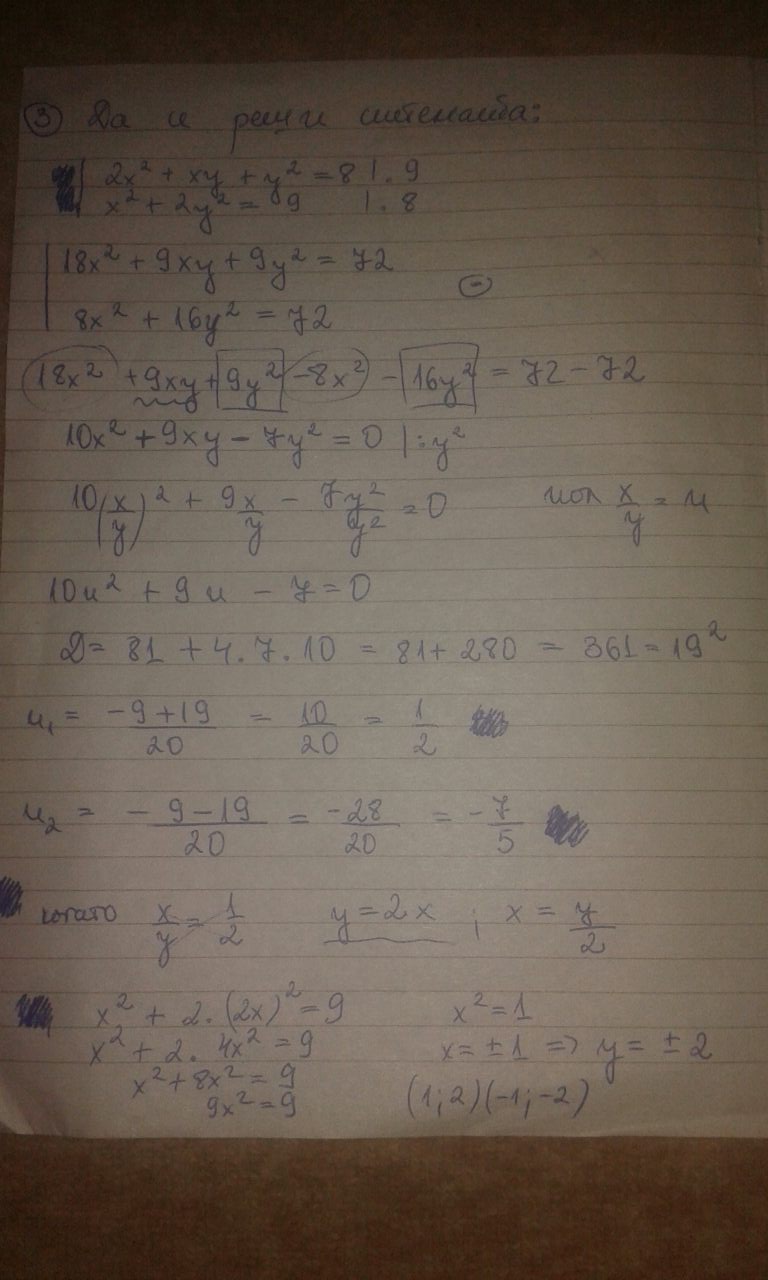 ③ Да се реши системата:
2x² + xy + y² = 8 |. 9
x² + 2y² = 9 |. 8
18x² + 9xy + 9y² = 72
⊖
8x² + 16y² = 72
18x² + 9xy + 9y² - 8x² - 16y² = 72 - 72
10x² + 9xy - 7y² = 0 |:y²
10(x/y)² + 9x/y - 7y²/y² = 0 пол x/y = u
10u² + 9u - 7 = 0
D = 81 + 4.7.10 = 81 + 280 = 361 = 19²
u₁ = (-9+19)/20 = 10/20 = 1/2
u₂ = (-9-19)/20 = -28/20 = -7/5
когато x/y = 1/2 y = 2x ; x = y/2
x² + 2.(2x)² = 9 x² = 1
x² + 2. 4x² = 9 x = ±1 => y = ±2
x² + 8x² = 9
9x² = 9 (1;2)(-1;-2)